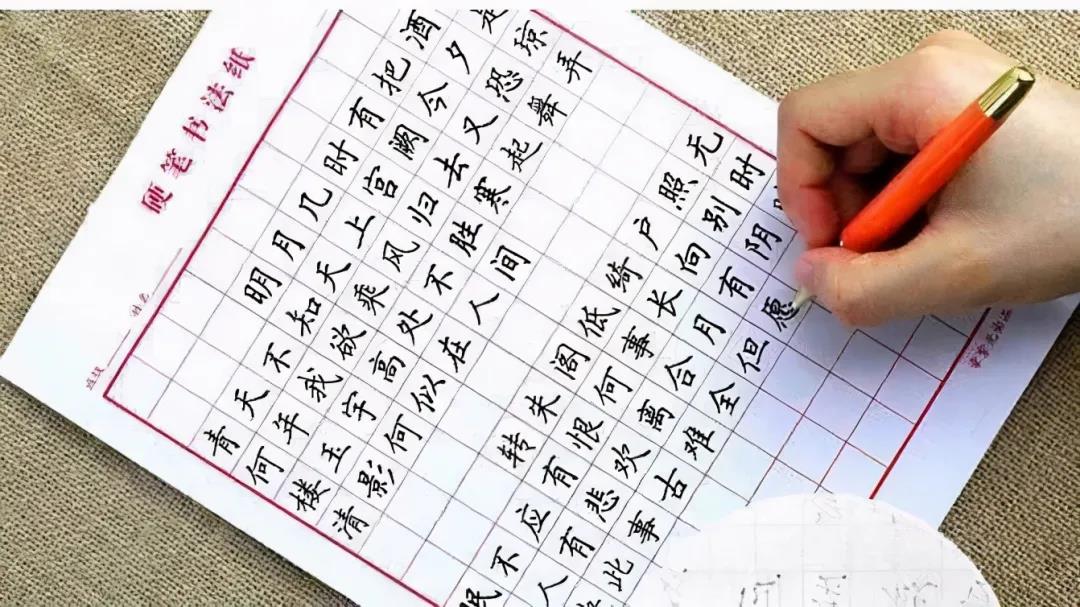 硬笔书法纸
班级 姓名
明月几时有把酒
青天不知天上宫阙今夕是
何年我欲乘风归去又恐琼
楼玉宇高处不胜寒起舞弄
清影何似在人间
转朱阁低绮户照无
眠不应有恨何事长向别时
人有悲欢离合月有阴
此事古难全但愿